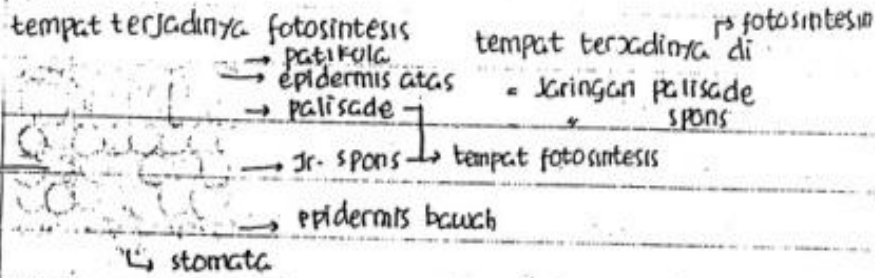 tempat terjadinya fotosintesis
→ patikula
→ epidermis atas
→ palisade
→ Jr. spons → tempat fotosintesis
→ epidermis bawah
↳ stomata
↱ fotosintesin
tempat terjadinya di
• Jaringan palisade
" spons